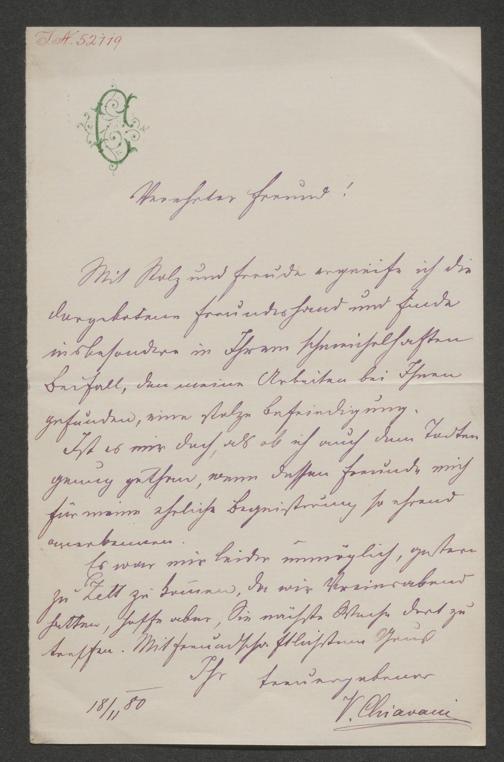 J.N. 52719
Verehrter Freund!
Mit Stolz und Freude ergreife ich die
dargebotene Freundeshand und finde
insbesondere in Ihrem schmeichelhaften
Beifall, den meine Arbeiten bei Ihnen
gefunden, eine stolze Befriedigung.
Ist es mir doch, als ob ich auch dem Todten
genug gethan, wenn dessen Freunde mich
für meine ehrliche Begeisterung so ehrend
anerkennen.
Es war mir leider unmöglich, gestern
zu Zett zu kommen, da wir Vereinsabend
hatten, hoffe aber, Sie nächste Woche dort zu
treffen. Mit freundschaftlichstem Gruß
Ihr treuergebener
18/11 80 V. Chiavacci